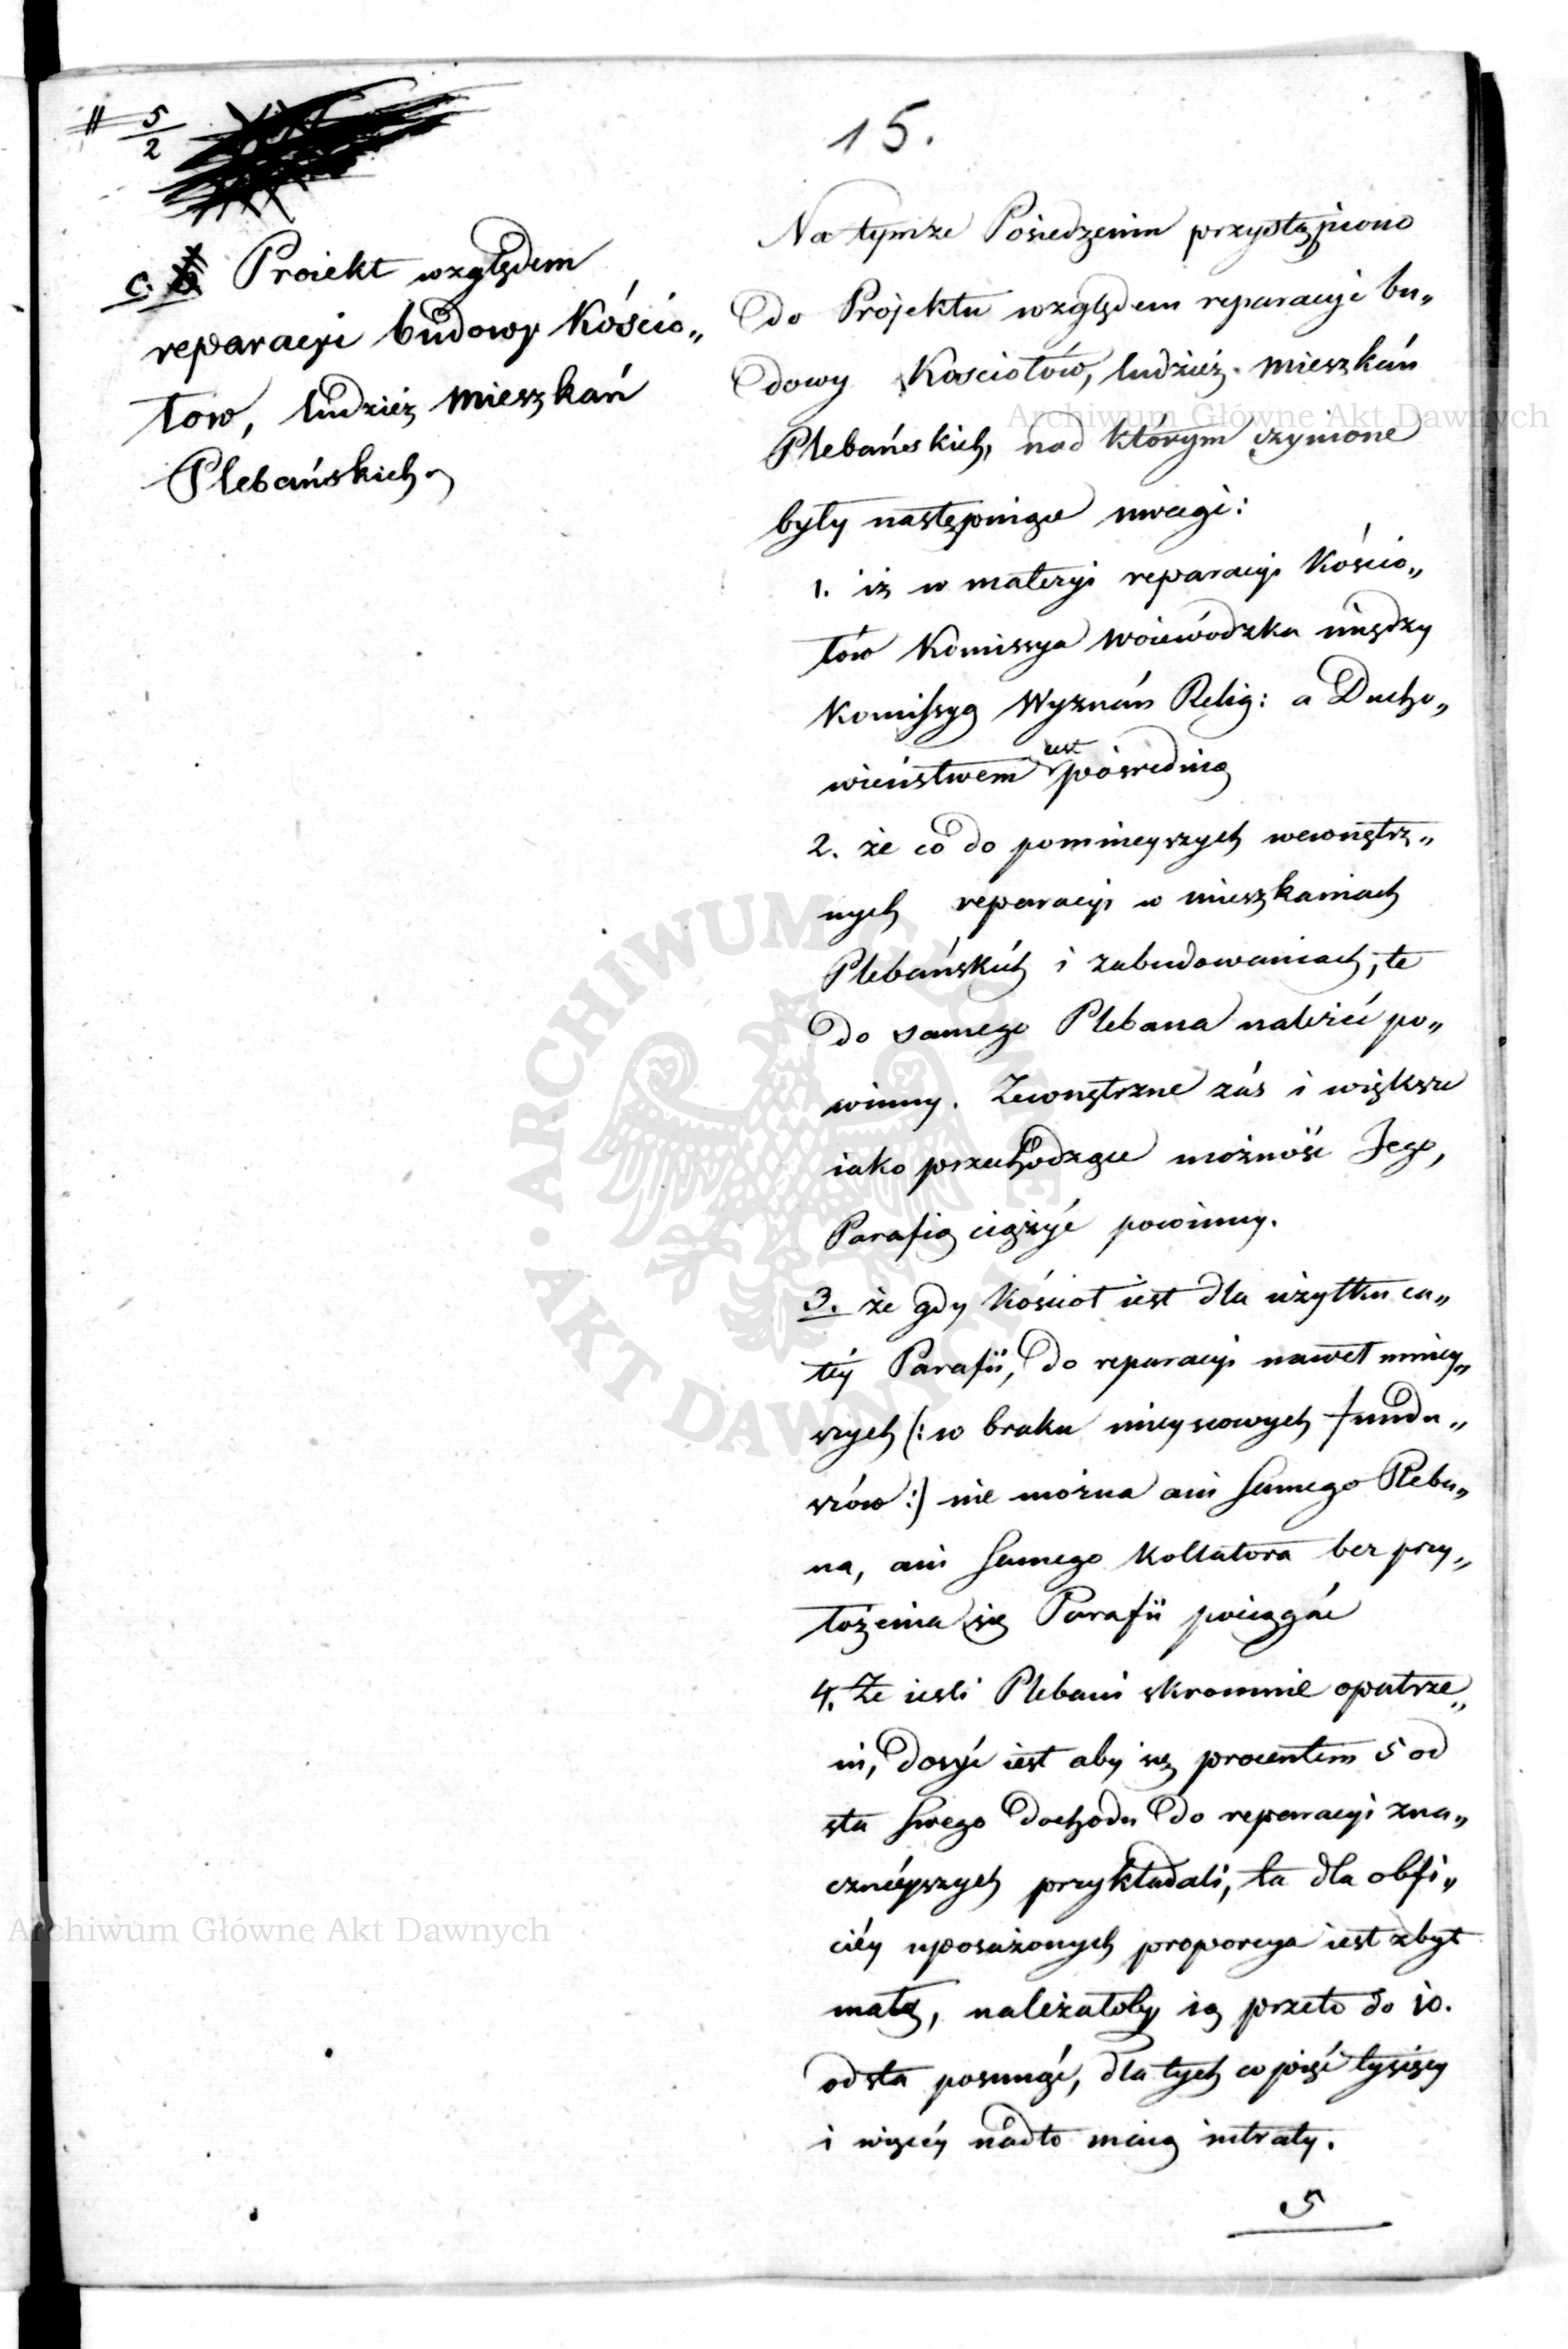 5/2
15.
c. Proiekt względem
reparacyi budowy Kościo„
łow, tudzież mieszkań
Plebańskich
Na tymże Posiedzeniu przystąpiono
do Projektu względem reparacyi bu„
dowy Kosciołów, tudzież mieszkań
Plebańskich, nad którym czynione
były następuiące uwagi:
1. iż w materyi reparacyi Kościo„
łów Komissya Woiewódzka między
Komissyą Wyznań Relig: a Ducho„
wieństwem iest pośrednią
2. że co do pomnieyszych wewnętrz„
nych reparacyi w mieszkaniach
Plebańskich i zabudowaniach, te
do samego Plebana należeć po„
winny. Zewnętrzne zaś i większe
iako przechodzące możność Jego,
Parafią ciążyć powinny.
3. że gdy Kościoł iest dla użytku ca„
łéy Parafii, do reparacyi nawet mniey„
szych (: w braku mieyscowych fundu„
szów :) nie można ani samego Pleba„
na, ani samego Kollatora bez przy„
łożenia się Parafii pociągać
4. Że ieśli Plebani skromnie opatrze„
ni, dosyć iest aby się procentem 5 od
sta swego dochodu do reparacyi zna„
cznieyszych przykładali, ta dla obfi„
ciéy uposażonych proporcya iest zbyt
małą, należałoby ią przeto do 10.
od sta posunąć, dla tych co pięć tysięcy
i więcéy nadto maią intraty.
5
Archiwum Główne Akt Dawnych
ARCHIWUM GŁÓWNE AKT DAWNYCH
Archiwum Główne Akt Dawnych